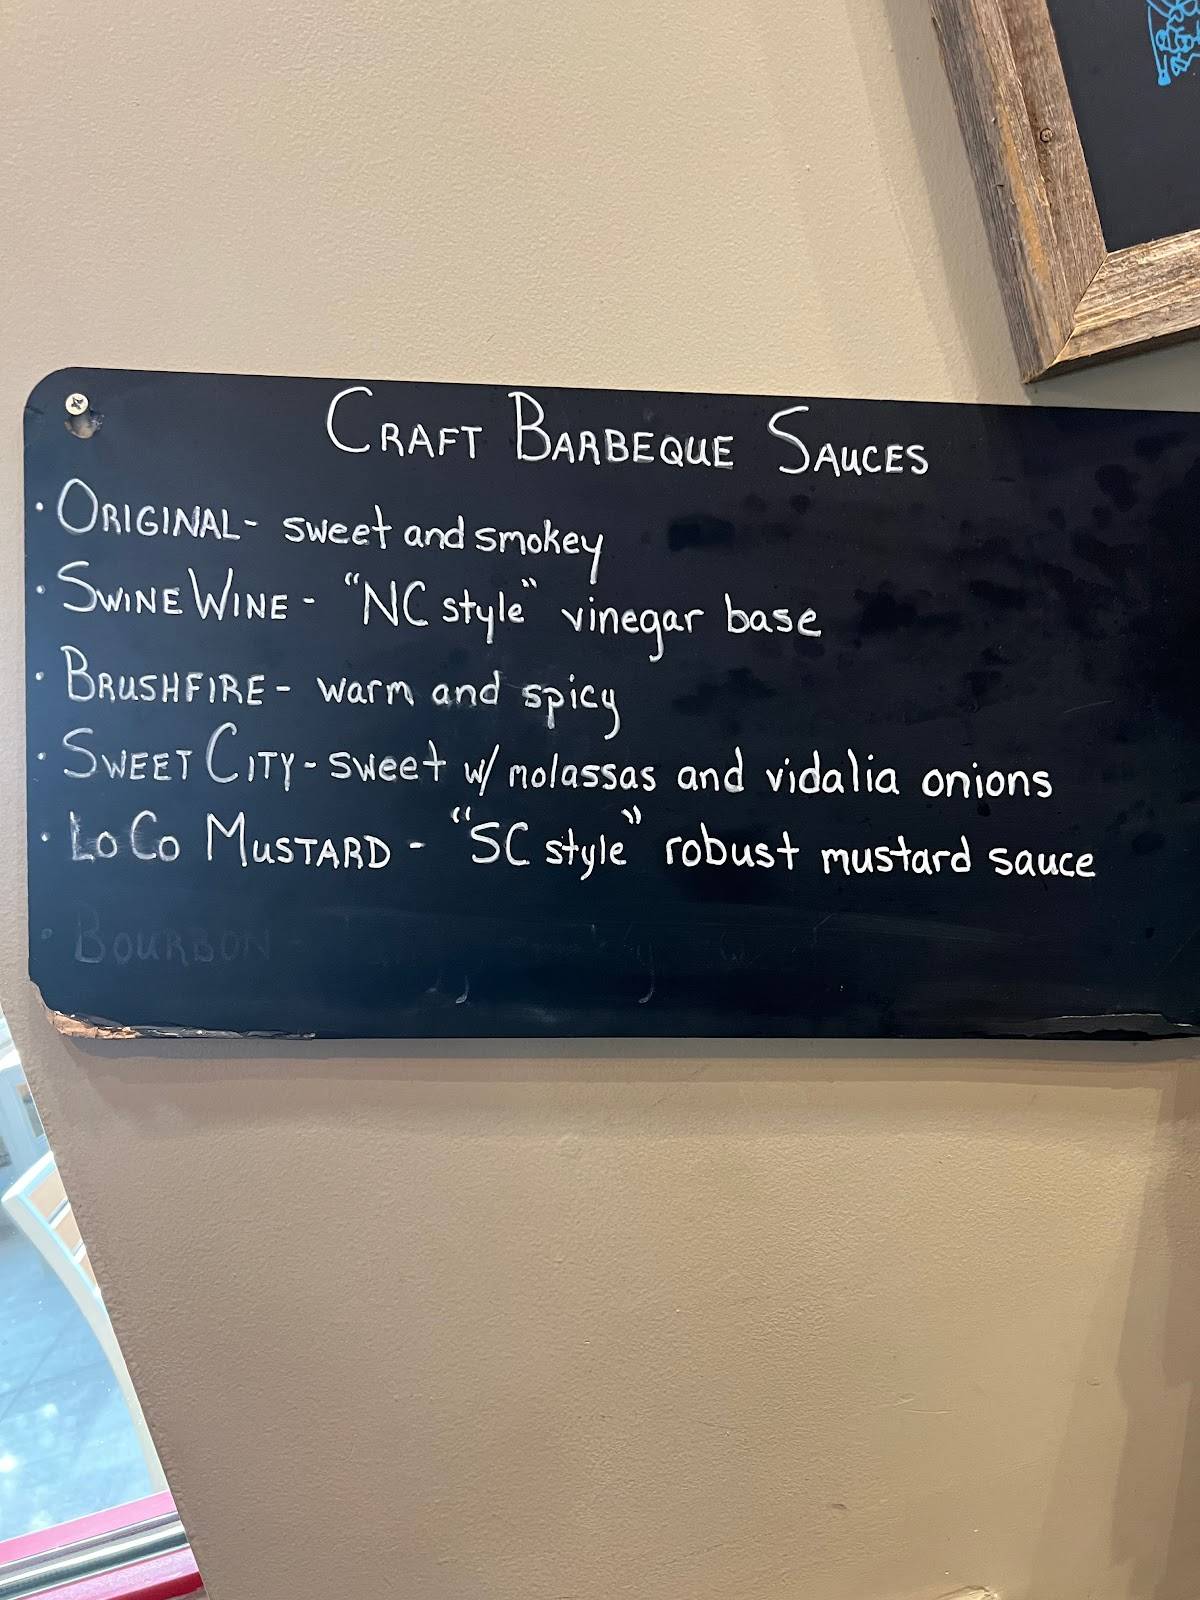 CRAFT BARBEQUE SAUCES
· ORIGINAL - sweet and smokey
· SWINE WINE - "NC style" vinegar base
· BRUSHFIRE - warm and spicy
· SWEET CITY - sweet w/ molassas and vidalia onions
· LOCO MUSTARD - "SC style" robust mustard sauce
· BOURBON -